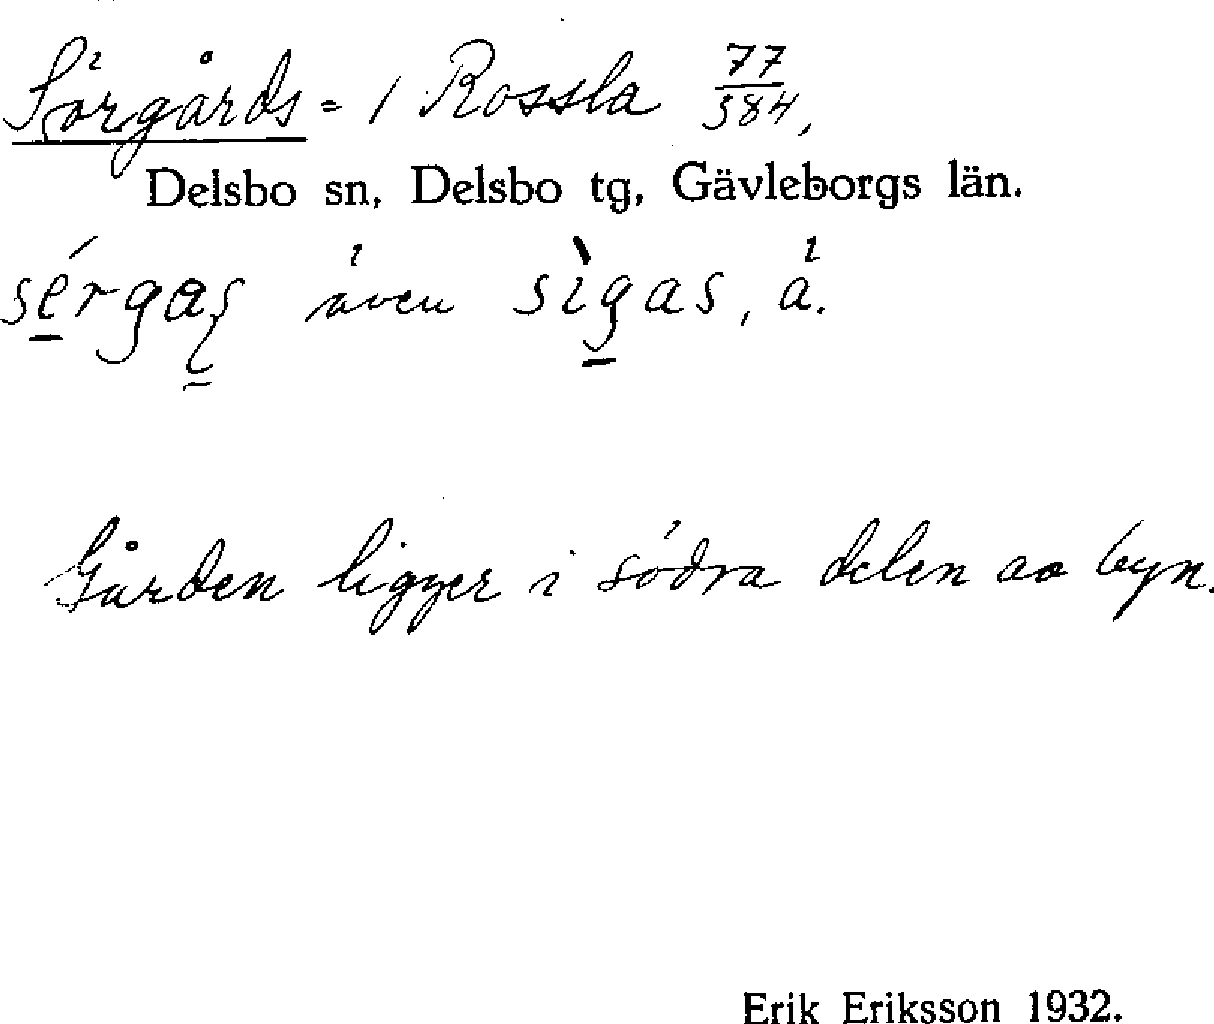 Sörgårds = 1 Rossla 77/384,
Delsbo sn, Delsbo tg, Gävleborgs län.
sérgas̨ även sìgas, å.
Gården ligger i södra delen av byn.
Erik Eriksson 1932.